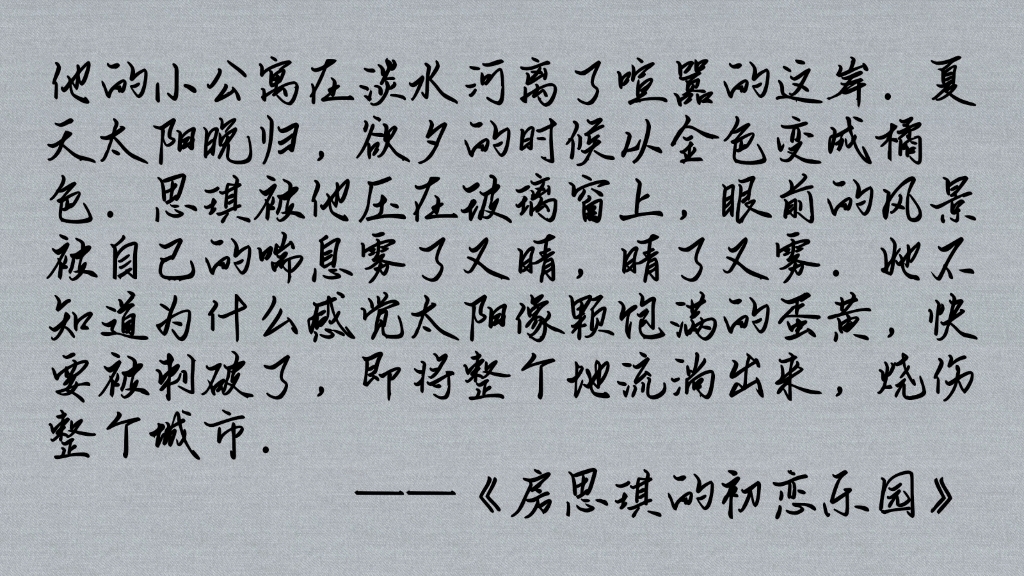 他的小公寓在淡水河离了喧嚣的这岸．夏
天太阳晚归，欲夕的时候从金色变成橘
色．思琪被他压在玻璃窗上，眼前的风景
被自己的喘息雾了又晴，晴了又雾．她不
知道为什么感觉太阳像颗饱满的蛋黄，快
要被刺破了，即将整个地流淌出来，烧伤
整个城市．
——《房思琪的初恋乐园》